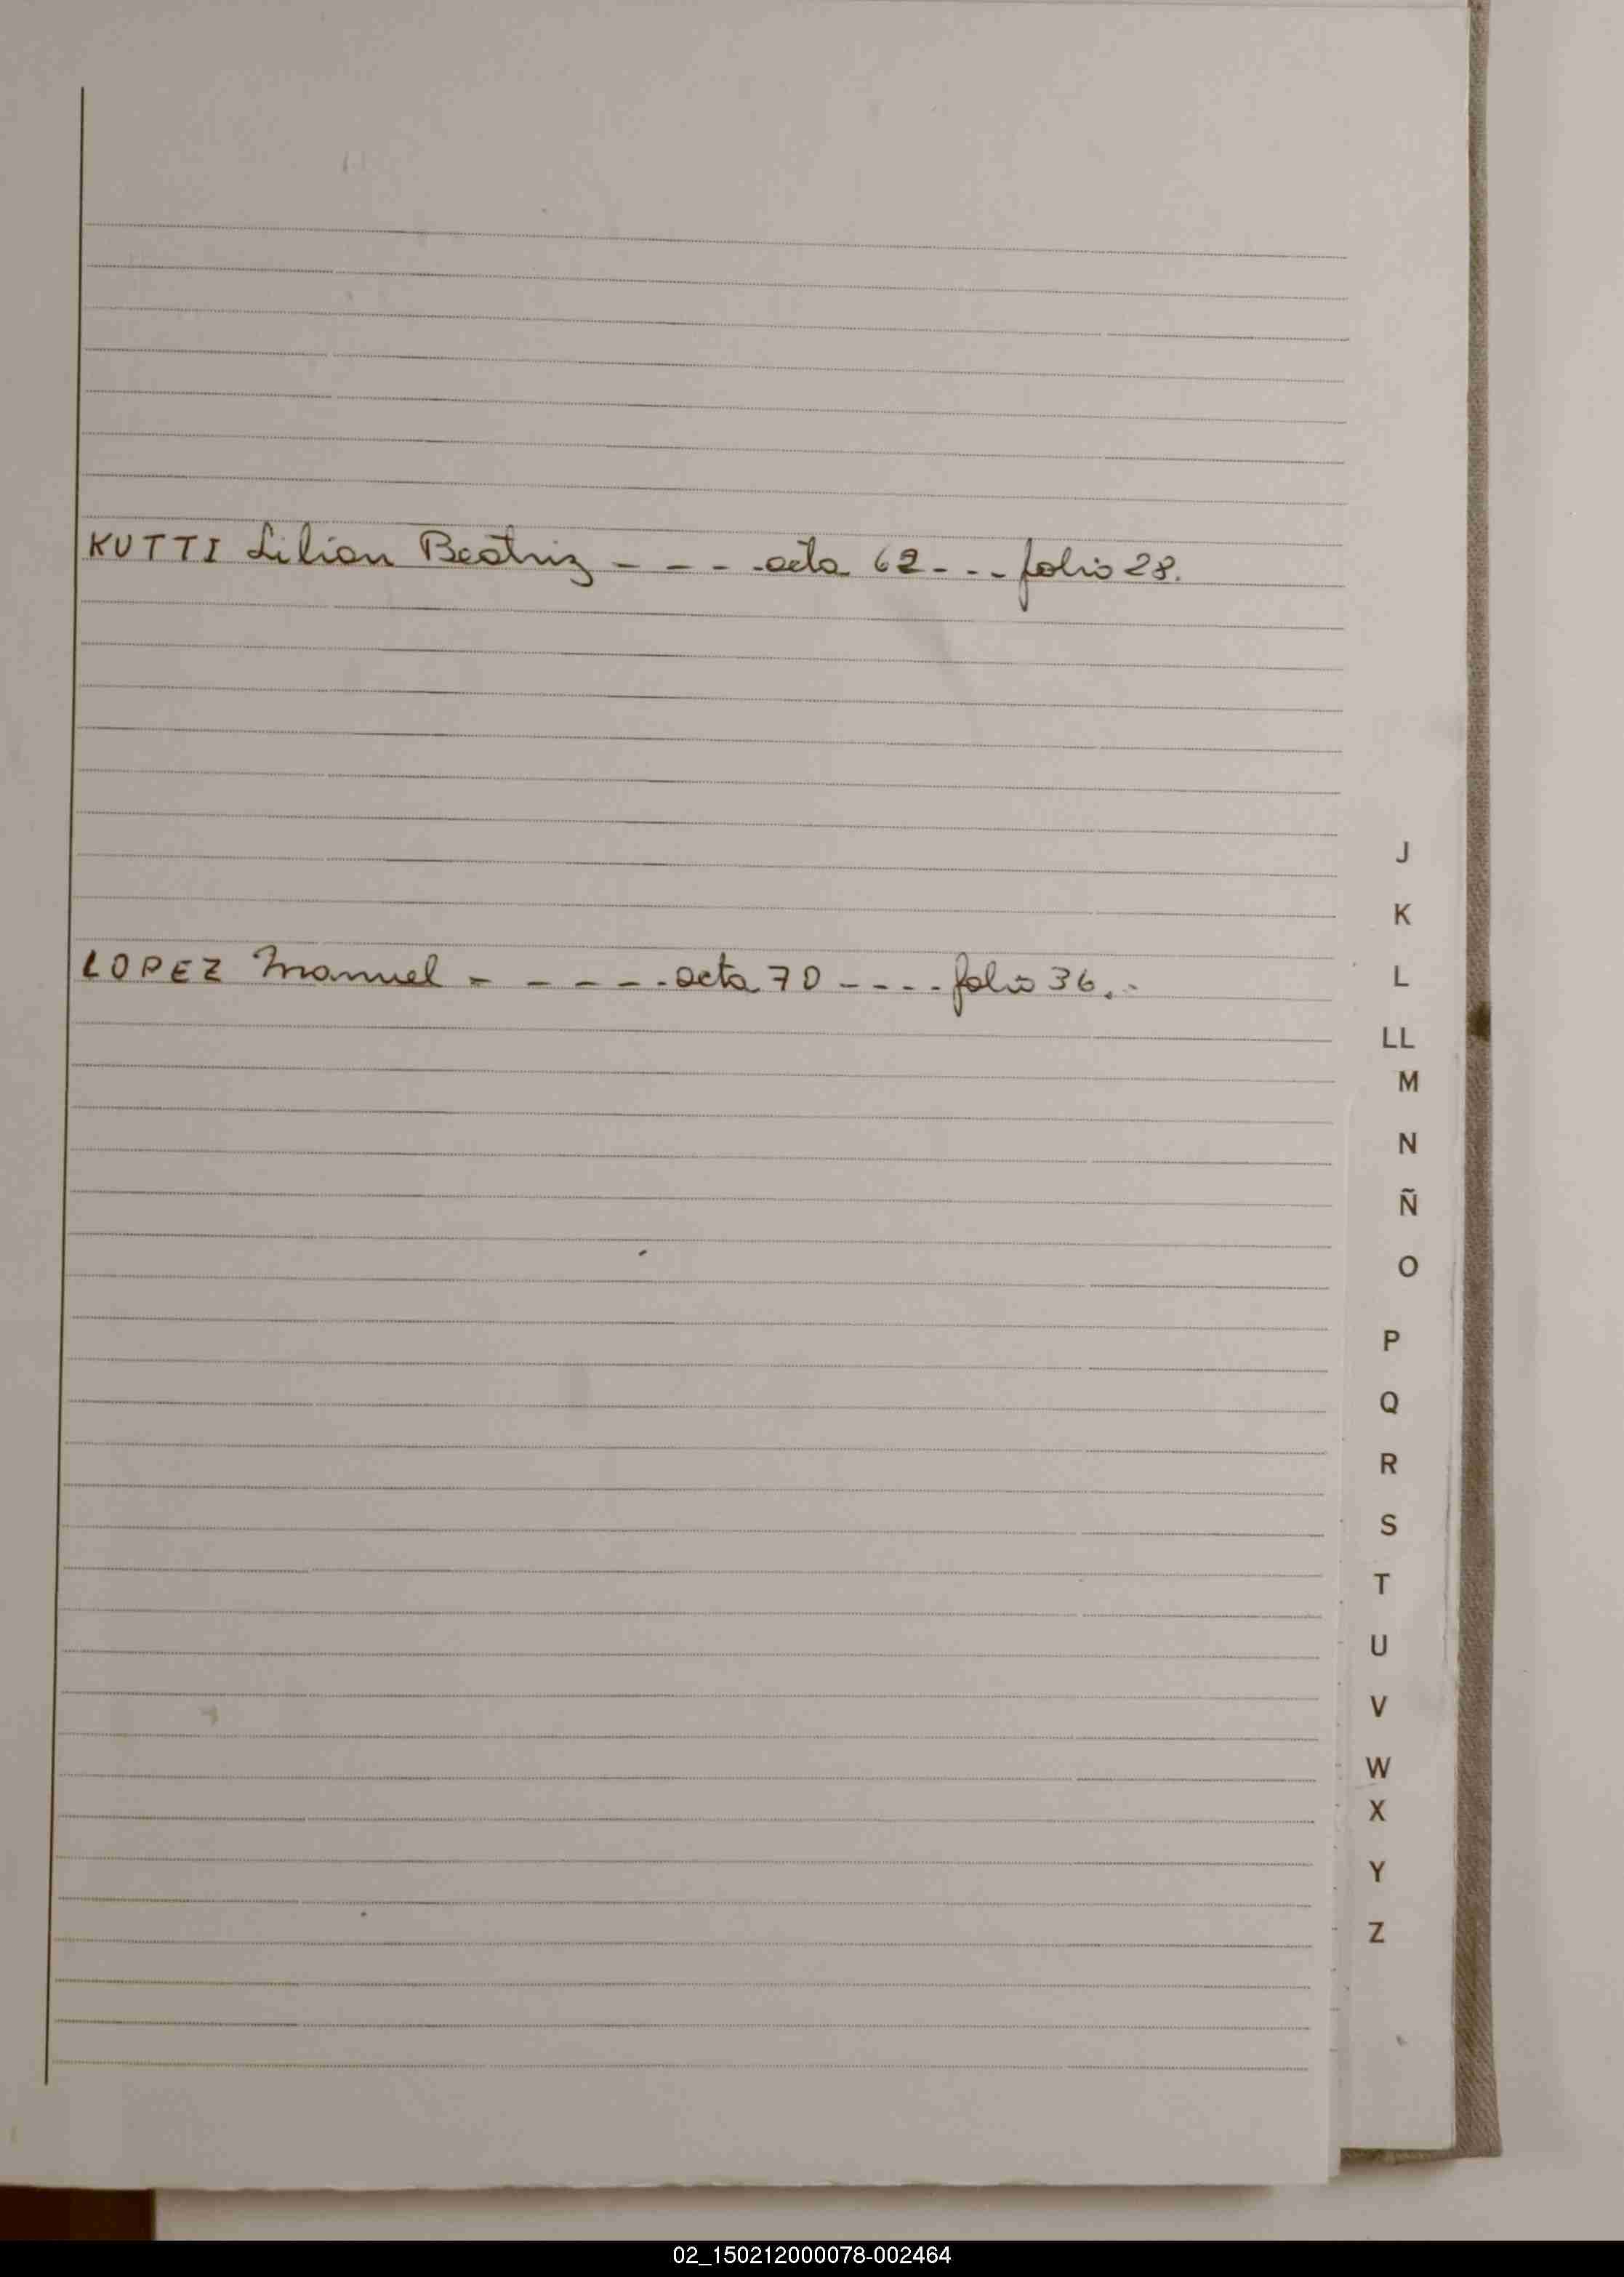 KUTTI Lilian Beatriz - - - - acta 62 - - - folio 28.
LOPEZ Manuel - - - - - acta 70 - - - - folio 36. -
J
K
L
LL
M
N
Ñ
O
P
Q
R
S
T
U
V
W
X
Y
Z
02_150212000078-002464